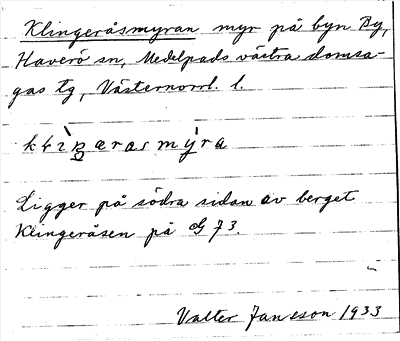 Klingeråsmyran myr på byn By,
Haverö sn, Medelpads västra domsa-
gas tg, Västernorrl. l.
Ligger på södra sidan av berget
Klingeråsen på G 73.
Valter Janeson 1933